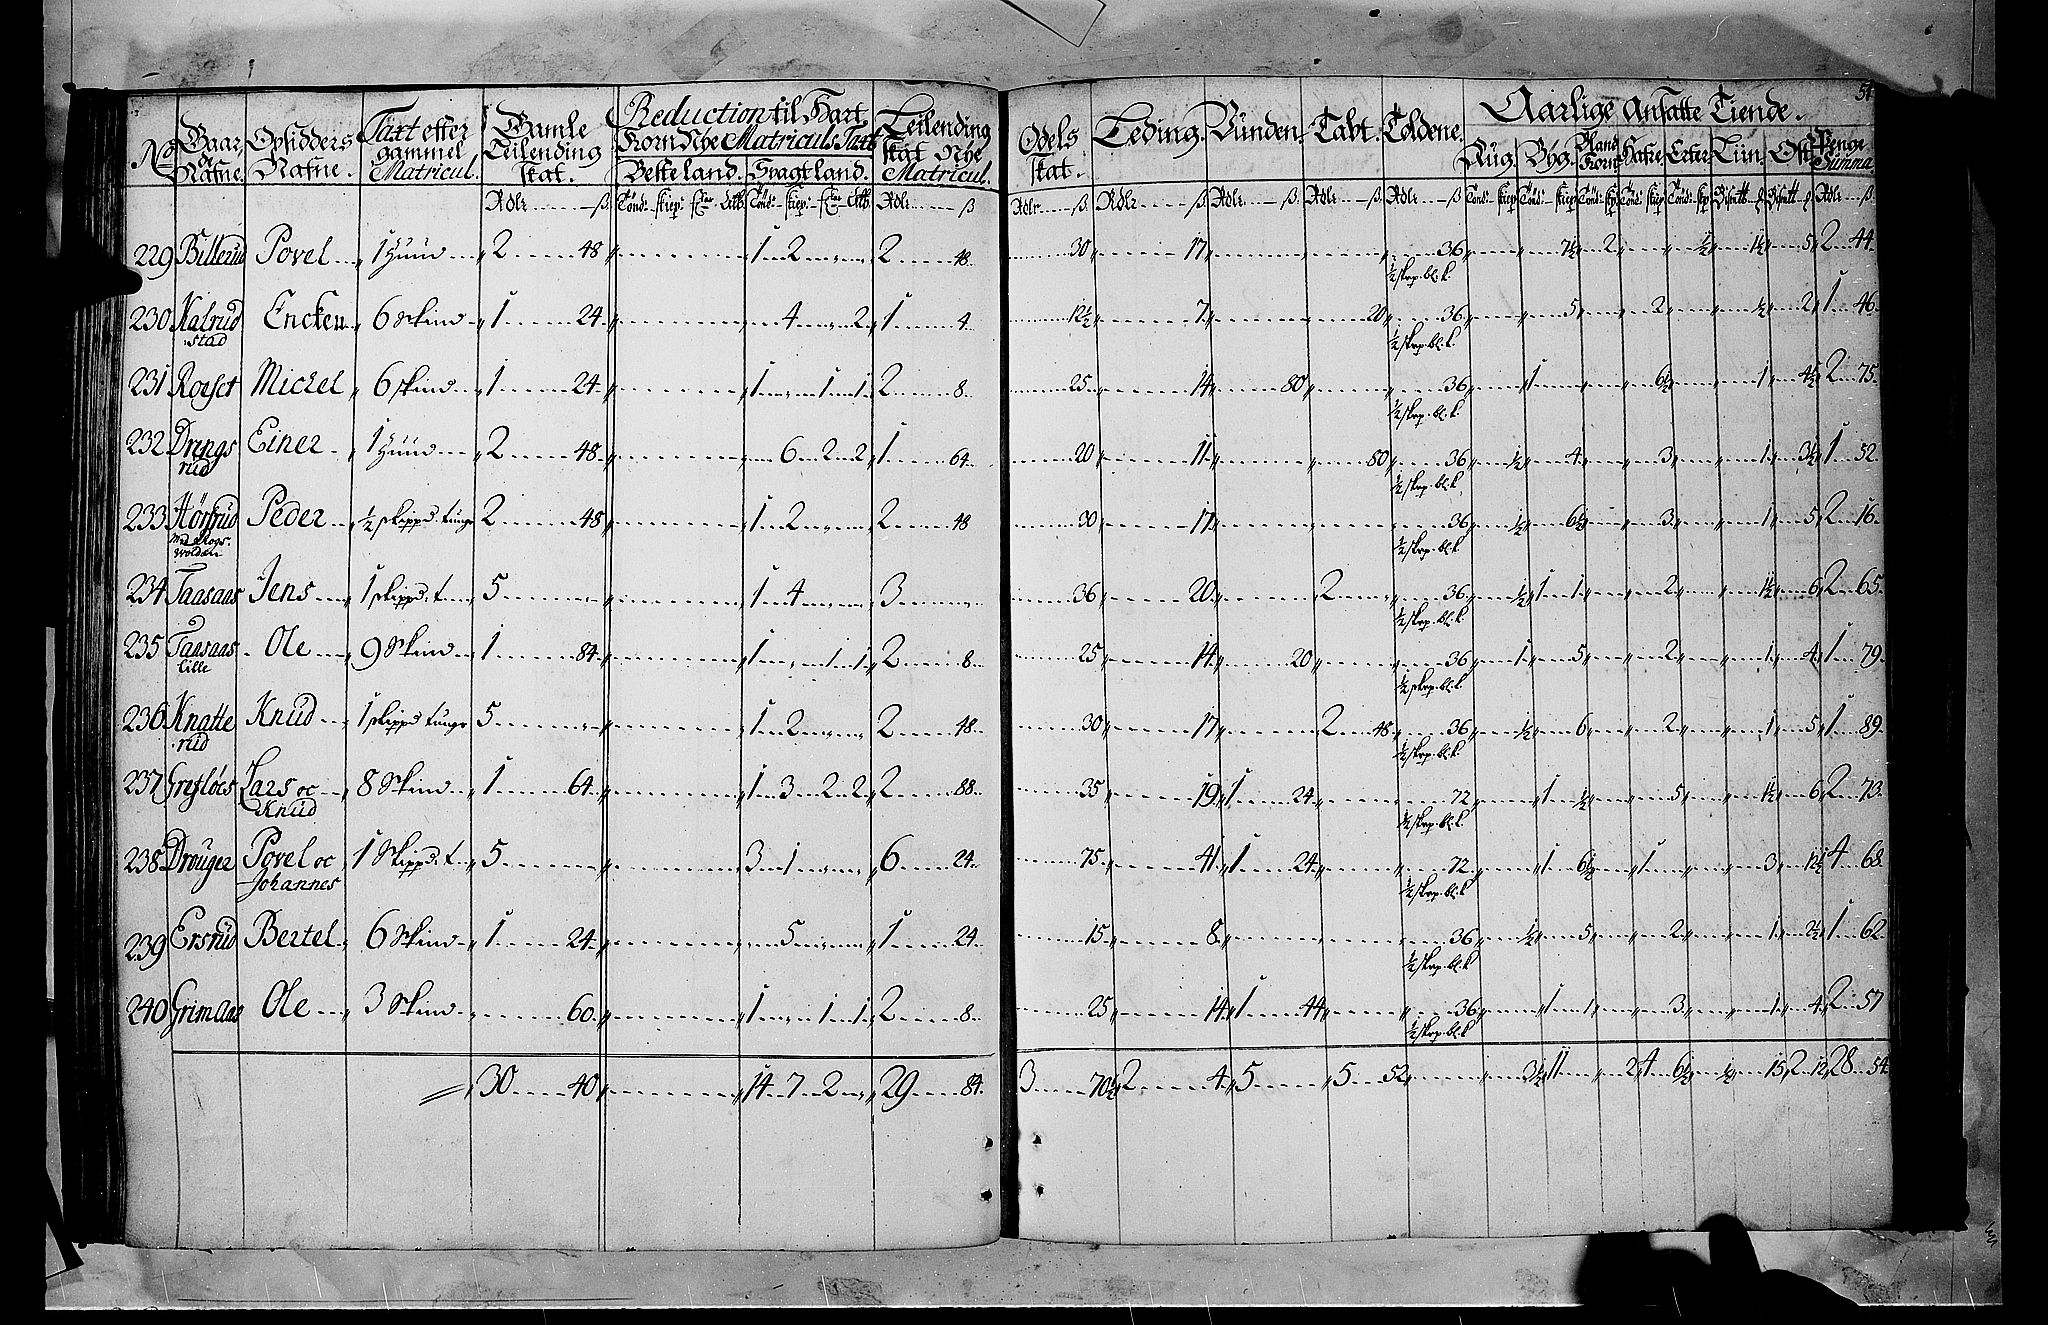 51
No Gaar Nafne. Opsidders Nafne. Taxt efter gammel Matricul. Gamle Leilending skat. Reduction til Hart Korn Nye Matriculs Taxt Besteland. Svagtland. Leilending skat Nye Matricul. Odels skat. Leding. Vunden. Tabt. Toldene. Aarlige Ansatte Tiende. Rug. Byg. Bland Korn Hafre. Erter. Liin. Ost Penge Summa
229 Billerud Povel 1 Huud 2 48 1 2 2 48 30 17 36 7½ 2 ½ 1½ 5 2 44
½ skrp. bl. k.
230 Kalrud Encken 6 Skind 1 24 4 2 1 4 12½ 7 20 36 5 2 ½ 2 1 46
stad ½ skrp. bl. k.
231 Roeset Michel 6 skind 1 24 1 1 1 2 8 25 14 80 36 1 6½ 1 4½ 2 75
½ skrp. bl. k.
232 Drengs Einer 1 Huud 2 48 6 2 2 1 64 20 11 80 36 ½ 4 3 1 3½ 1 52
rud ½ skrp. bl. k.
233 Hörsrud Peder ½ skippd. tunge 2 48 1 2 2 48 30 17 36 ½ 6½ 3 1 5 2 16
½ skrp. bl. k
234 Taasaas Jens 1 skippd. t 5 1 4 3 36 20 2 36 ½ 1 1 2 1½ 6 2 65
½ skrp. bl. k
235 Taasaas Ole 9 Skind 1 84 1 1 1 2 8 25 14 20 36 1 5 2 1 4 1 79
lille ½ skrp. bl. k
236 Knatte Knud 1 skippd tunge 5 1 2 2 48 30 17 2 48 36 ½ 6 2 1 5 1 89
rud ½ skrp. bl. k.
237 Grefslös Lars oc 8 Skind 1 64 1 3 2 2 2 88 35 19 1 24 72 1 ½ 5 1½ 6 2 73
Knud ½ skrp. bl. k.
238 Drouger Povel oc 1 Skippd. t 5 3 1 6 24 75 41 1 24 72 1 6½ 1 3 12½ 4 68
Johannes ½ skrp. bl. k
239 Ersrud Bertel 6 Skind 1 24 5 1 24 15 8 36 ½ 5 2 1 2½ 1 62
½ skrp. bl. k
240 Grimaas Ole 3 Skind 60 1 1 1 2 8 25 14 1 44 36 1 1 3 1 4 2 57
½ skrp. bl. k
30 40 14 7 2 29 84 3 70½ 2 4 5 5 52 3½ 11 2 4 6½ ½ 15 2 12 28 54